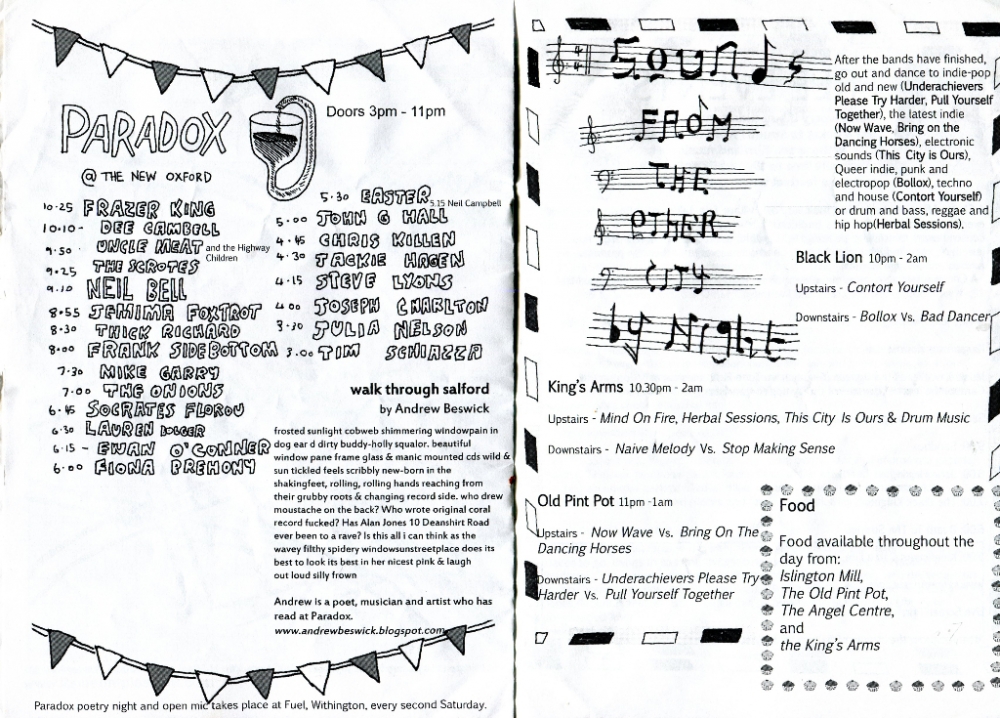 PARADOX
Doors 3pm - 11pm
@ THE NEW OXFORD
10.25 FRAZER KING
10.10- DEE CAMBELL
9.50. UNCLE MEAT and the Highway
Children
9.25 THE SCROTES
9.10 NEIL BELL
8.55 JEMIMA FOXTROT
8.30 THICK RICHARD
8.00 FRANK SIDEBOTTOM
7.30 MIKE GARRY
7.00 THE ONIONS
6.45 SOCRATES FLOROU
6.30 LAUREN BOLGER
6.15 - EWAN O'CONNER
6.00 FIONA BREHONY
5.30 EASTER
5.15 Neil Campbell
5.00 JOHN G HALL
4.45 CHRIS KILLEN
4.30 JACKIE HAGEN
4.15 STEVE LYONS
4.00 JOSEPH CHARLTON
3.30 JULIA NELSON
3.00 TIM SCHIAZZA
walk through salford
by Andrew Beswick
frosted sunlight cobweb shimmering windowpain in
dog ear d dirty buddy-holly squalor. beautiful
window pane frame glass & manic mounted cds wild &
sun tickled feels scribbly new-born in the
shakingfeet, rolling, rolling hands reaching from
their grubby roots & changing record side. who drew
moustache on the back? Who wrote original coral
record fucked? Has Alan Jones 10 Deanshirt Road
ever been to a rave? Is this all i can think as the
wavey filthy spidery windowsunstreetplace does its
best to look its best in her nicest pink & laugh
out loud silly frown
Andrew is a poet, musician and artist who has
read at Paradox.
www.andrewbeswick.blogspot.com
Paradox poetry night and open mic takes place at Fuel, Withington, every second Saturday.
SOUNDS
FROM
THE
OTHER
CITY
by Night
After the bands have finished,
go out and dance to indie-pop
old and new (Underachievers
Please Try Harder, Pull Yourself
Together), the latest indie
(Now Wave, Bring on the
Dancing Horses), electronic
sounds (This City is Ours),
Queer indie, punk and
electropop (Bollox), techno
and house (Contort Yourself)
or drum and bass, reggae and
hip hop(Herbal Sessions).
Black Lion 10pm - 2am
Upstairs - Contort Yourself
Downstairs - Bollox Vs. Bad Dancer
King's Arms 10.30pm - 2am
Upstairs - Mind On Fire, Herbal Sessions, This City Is Ours & Drum Music
Downstairs - Naive Melody Vs. Stop Making Sense
Old Pint Pot 11pm -1am
Upstairs - Now Wave Vs. Bring On The
Dancing Horses
Downstairs - Underachievers Please Try
Harder Vs. Pull Yourself Together
Food
Food available throughout the
day from:
Islington Mill,
The Old Pint Pot,
The Angel Centre,
and
the King's Arms